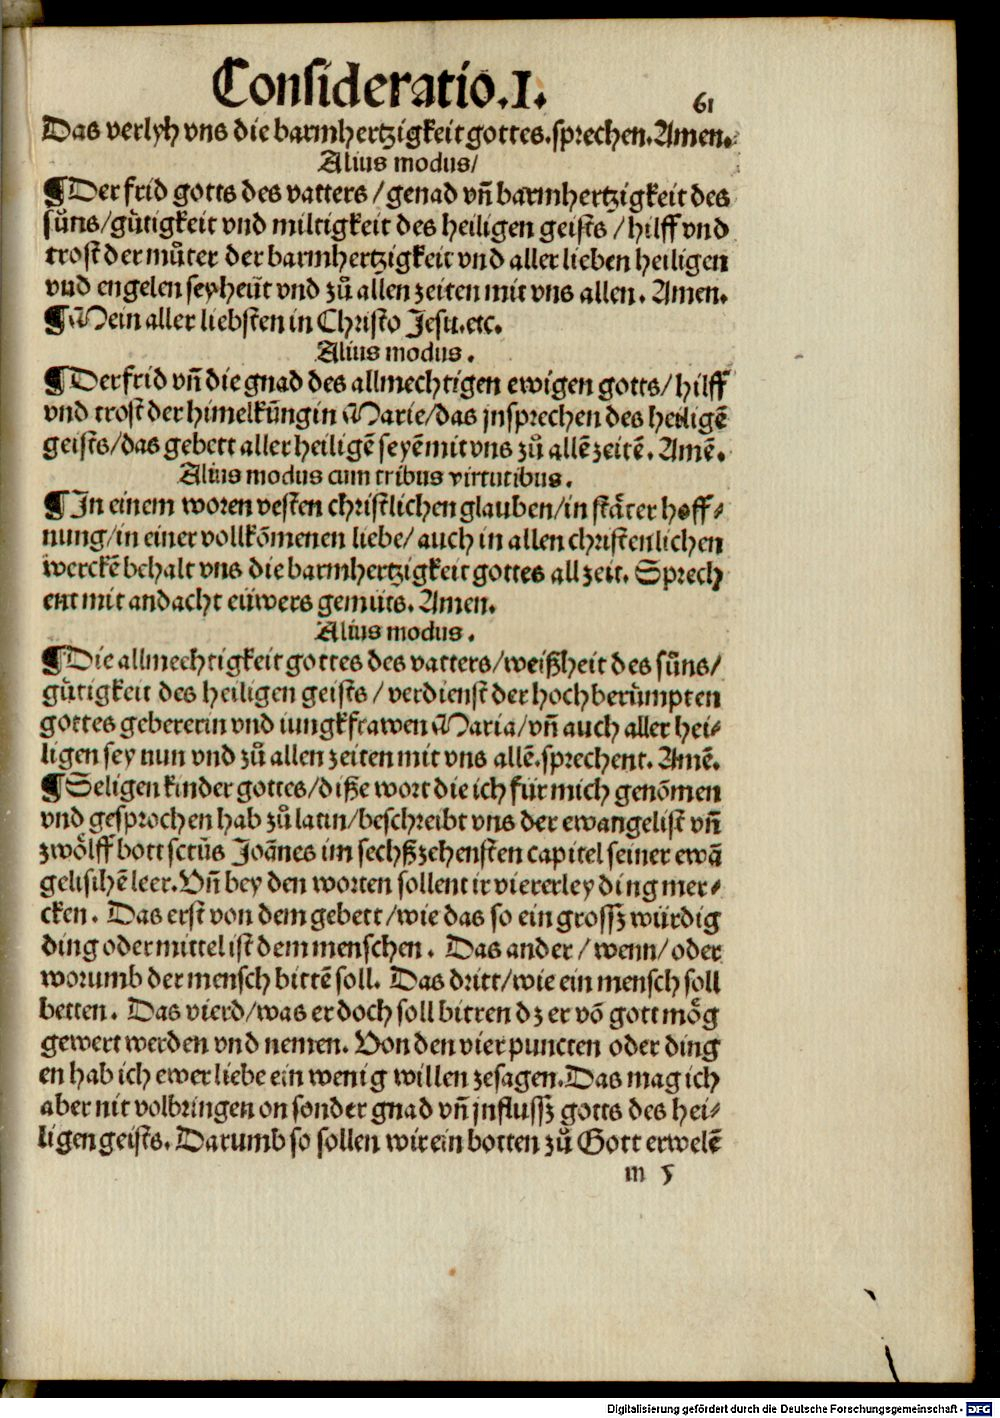 Consideratio.I.
61
Das verlyh vns die barmhertzigkeit gottes.sprechen.Amen.
Alius modus/
¶Der frid gotts des vatters/genad vn̄ barmhertzigkeit des
suͤns/guͤtigkeit vnd miltigkeit des heiligen geists/hilff vnd
trost der muͦter der barmhertzigkeit vnd aller lieben heiligen
vnd engelen sey heuͤt vnd zuͦ allen zeiten mit vns allen. Amen.
¶Mein aller liebsten in Christo Jesu.etc.
Alius modus.
¶Der frid vn̄ die gnad des allmechtigen ewigen gotts/hilff
vnd trost der himelkuͤngin Marie/das jnsprechen des heiligē
geists/das gebett aller heiligē seyē mit vns zuͦ allē zeitē. Amē.
Alius modus cum tribus virtutibus.
¶In einem woren vesten christlichen glauben/in staͤter hoff⸗
nung/in einer vollkōmenen liebe/auch in allen christenlichen
werckē behalt vns die barmhertzigkeit gottes all zeit. Sprech
ent mit andacht euͤwers gemuͤts. Amen.
Alius modus.
¶Die allmechtigkeit gottes des vatters/weißheit des suͤns/
guͤtigkeit des heiligen geists/verdienst der hochberuͤmpten
gottes gebererin vnd iungkfrawen Maria/vn̄ auch aller hei⸗
ligen sey nun vnd zuͦ allen zeiten mit vns allē.sprechent. Amē.
¶Seligen kinder gottes/diße wort die ich für mich genōmen
vnd gesprochen hab zuͦ latin/beschreibt vns der ewangelist vn̄
zwoͤlff bott sctūs Joānes im sechßzehensten capitel seiner ewā
gelischē leer.Vn̄ bey den worten sollent ir viererley ding mer⸗
cken. Das erst von dem gebett/wie das so ein grossz würdig
ding oder mittel ist dem menschen. Das ander/wenn/oder
worumb der mensch bittē soll. Das dritt/wie ein mensch soll
betten. Das vierd/was er doch soll bitten dz er vō gott moͤg
gewert werden vnd nemen. Von den vier puncten oder ding
en hab ich ewer liebe ein wenig willen zesagen.Das mag ich
aber nit volbringen on sonder gnad vn̄ jnflussz gotts des hei⸗
ligen geists. Darumb so sollen wir ein botten zuͦ Gott erwelē
m 5
Digitalisierung gefördert durch die Deutsche Forschungsgemeinschaft - DFG